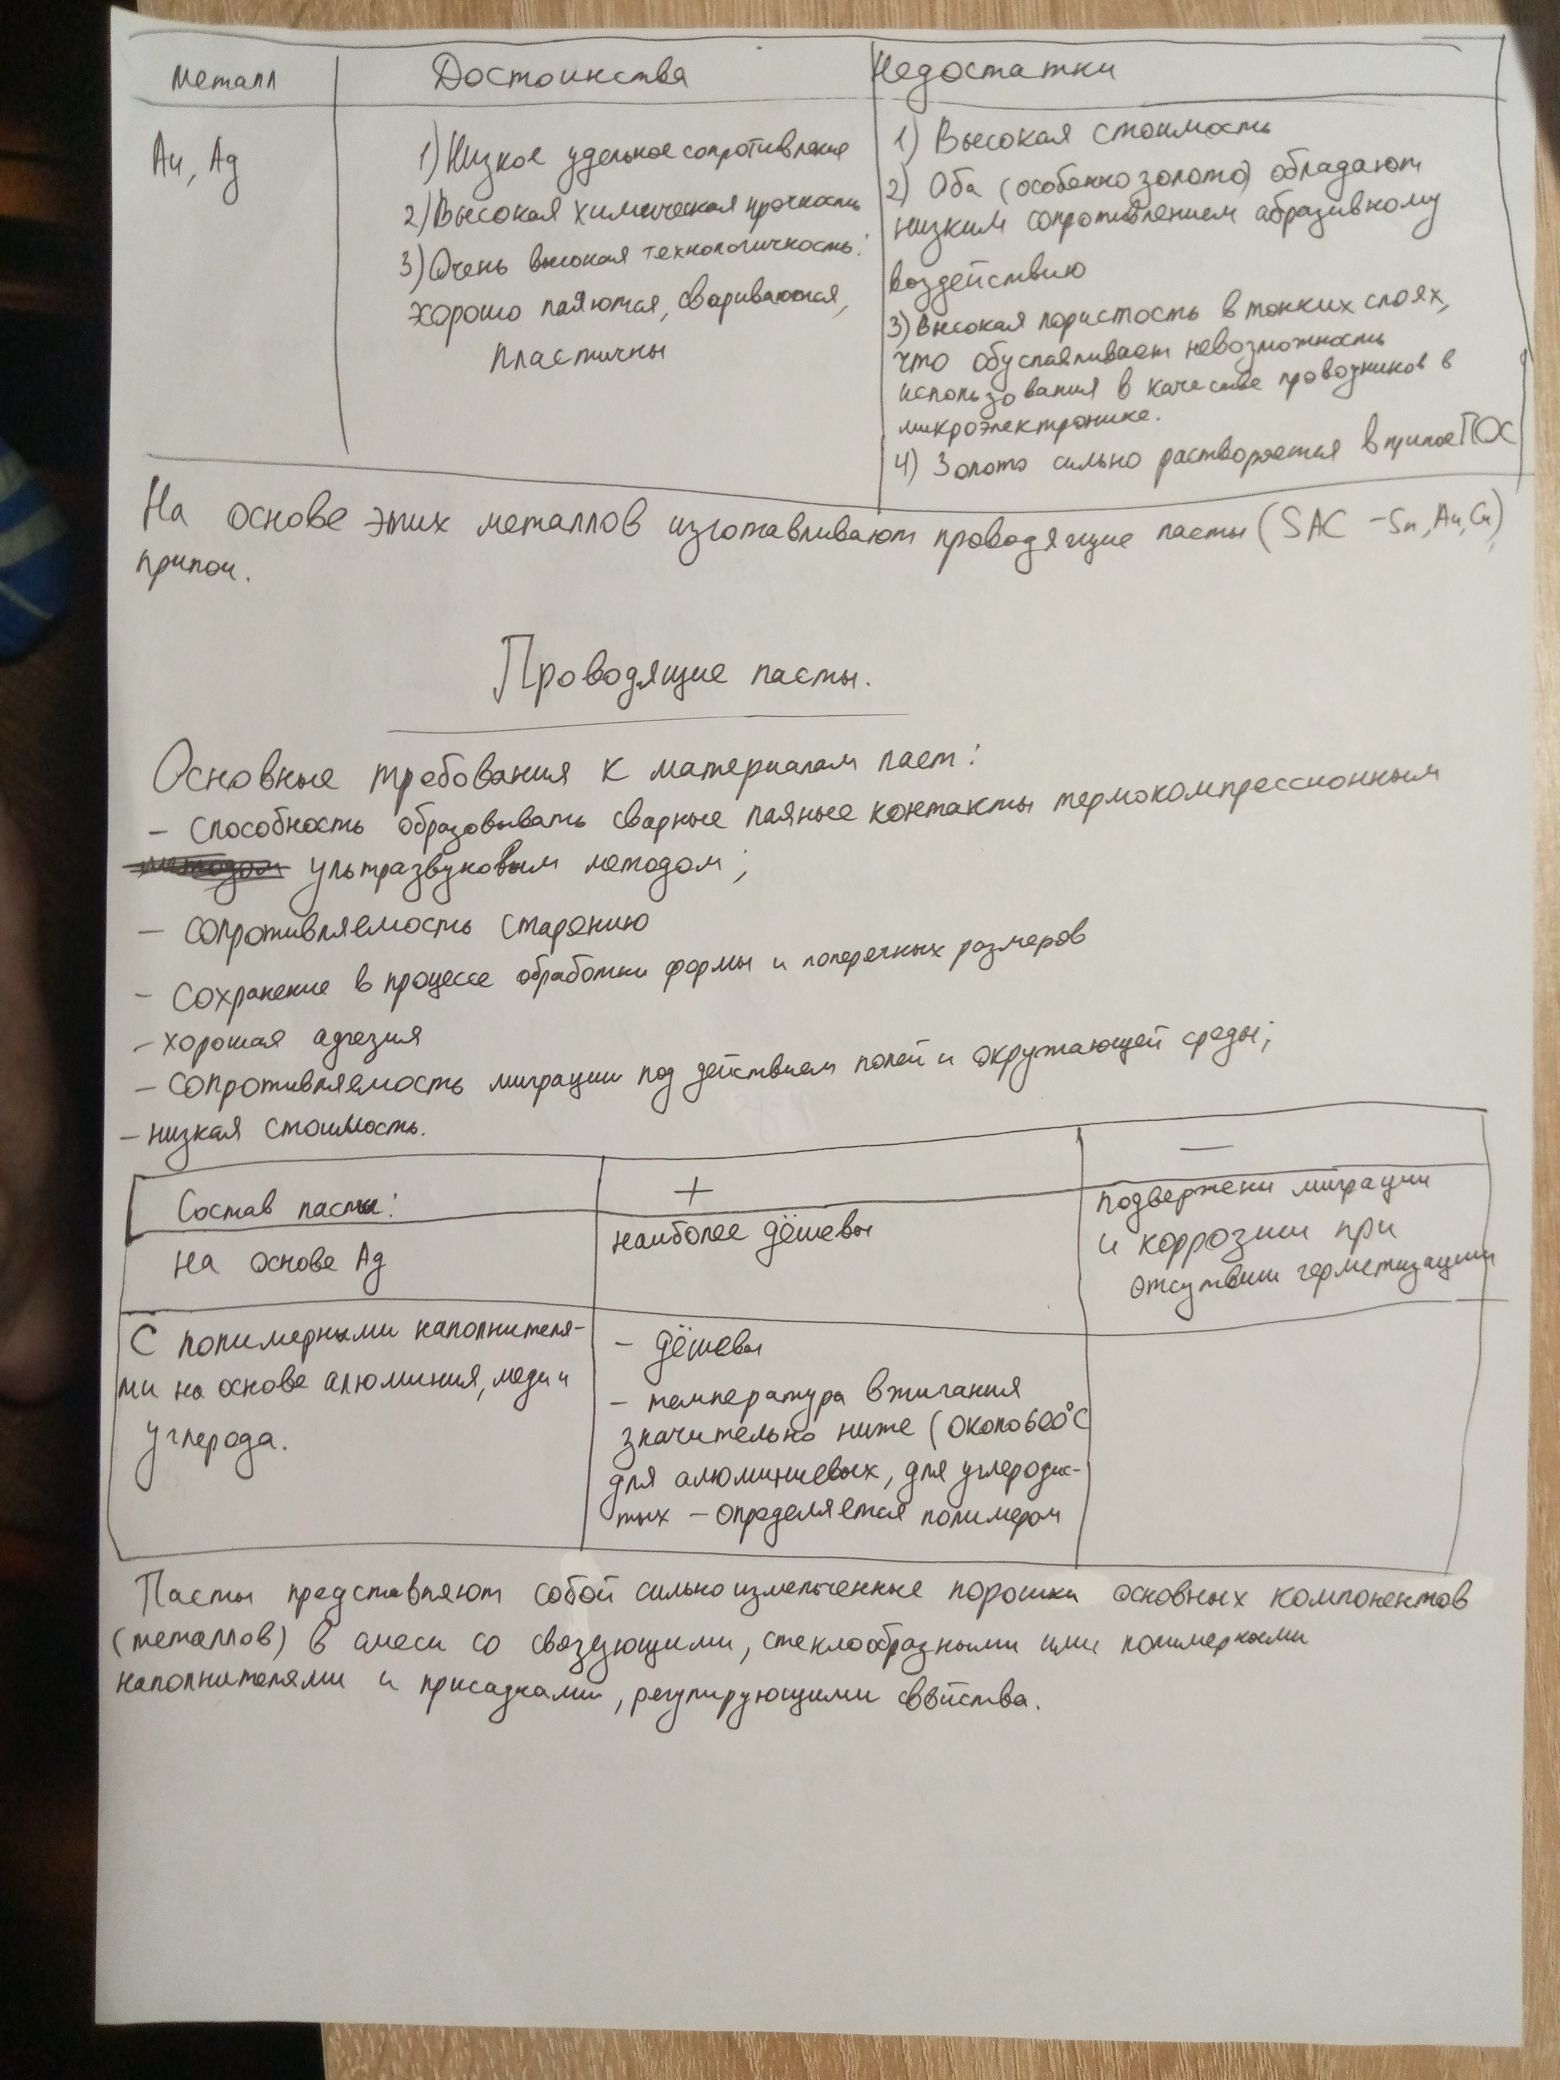 Металл
Достоинства
Недостатки
Au, Ag
1) Низкое удельное сопротивление
2) Высокая химическая прочность
3) Очень высокая технологичность:
хорошо паяются, свариваются,
пластичны
1) Высокая стоимость
2) Оба (особенно золото) обладают
низким сопротивлением абразивному
воздействию
3) Высокая пористость в тонких слоях,
что обуславливает невозможность
использования в качестве проводников в
микроэлектронике.
4) Золото сильно растворяется в припое ПОС
На основе этих металлов изготавливают проводящие пасты (SAC - Sn, Au, Cu)
припои.
Проводящие пасты.
Основные требования к материалам паст:
- способность образовывать сварные паяные контакты термокомпрессионным
методом ультразвуковым методом;
- сопротивляемость старению
- сохранение в процессе обработки формы и поперечных размеров
- хорошая адгезия
- сопротивляемость миграции под действием полей и окружающей среды;
- низкая стоимость.
Состав пасты:
+
−
На основе Ag
наиболее дёшевы
подвержены миграции
и коррозии при
отсутвии герметизации
С полимерными наполнителя-
ми на основе алюминия, меди и
углерода.
- дёшевы
- температура вжигания
значительно ниже (около 600°C
для алюминиевых, для углеродис-
тых - определяется полимером
Пасты представляют собой сильно измельченные порошки основных компонентов
(металлов) в смеси со связующими, стеклообразными или полимерными
наполнителями и присадками, регулирующими свойства.